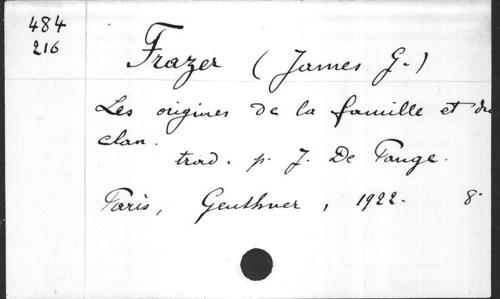 484
216
Frazer (James G.)
Les origines de la famille et du
clan.
trad. p. J. De Pange.
Paris, Geuthner, 1922. 8°